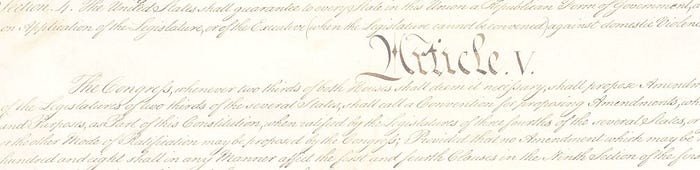 Section. 4. The United States shall guarantee to every State in this Union a Republican Form of Government, a
on Application of the Legislature, or of the Executive (when the Legislature cannot be convened) against domestic Violenc
Article. V.
The Congress, whenever two thirds of both Houses shall deem it necessary, shall propose Amendm
of the Legislatures of two thirds of the several States, shall call a Convention for proposing Amendments, wh
and Purposes, as Part of this Constitution, when ratified by the Legislatures of three fourths of the several States, or
or the other Mode of Ratification may be proposed by the Congress; Provided that no Amendment which may be
hundred and eight shall in any Manner affect the first and fourth Clauses in the Ninth Section of the first